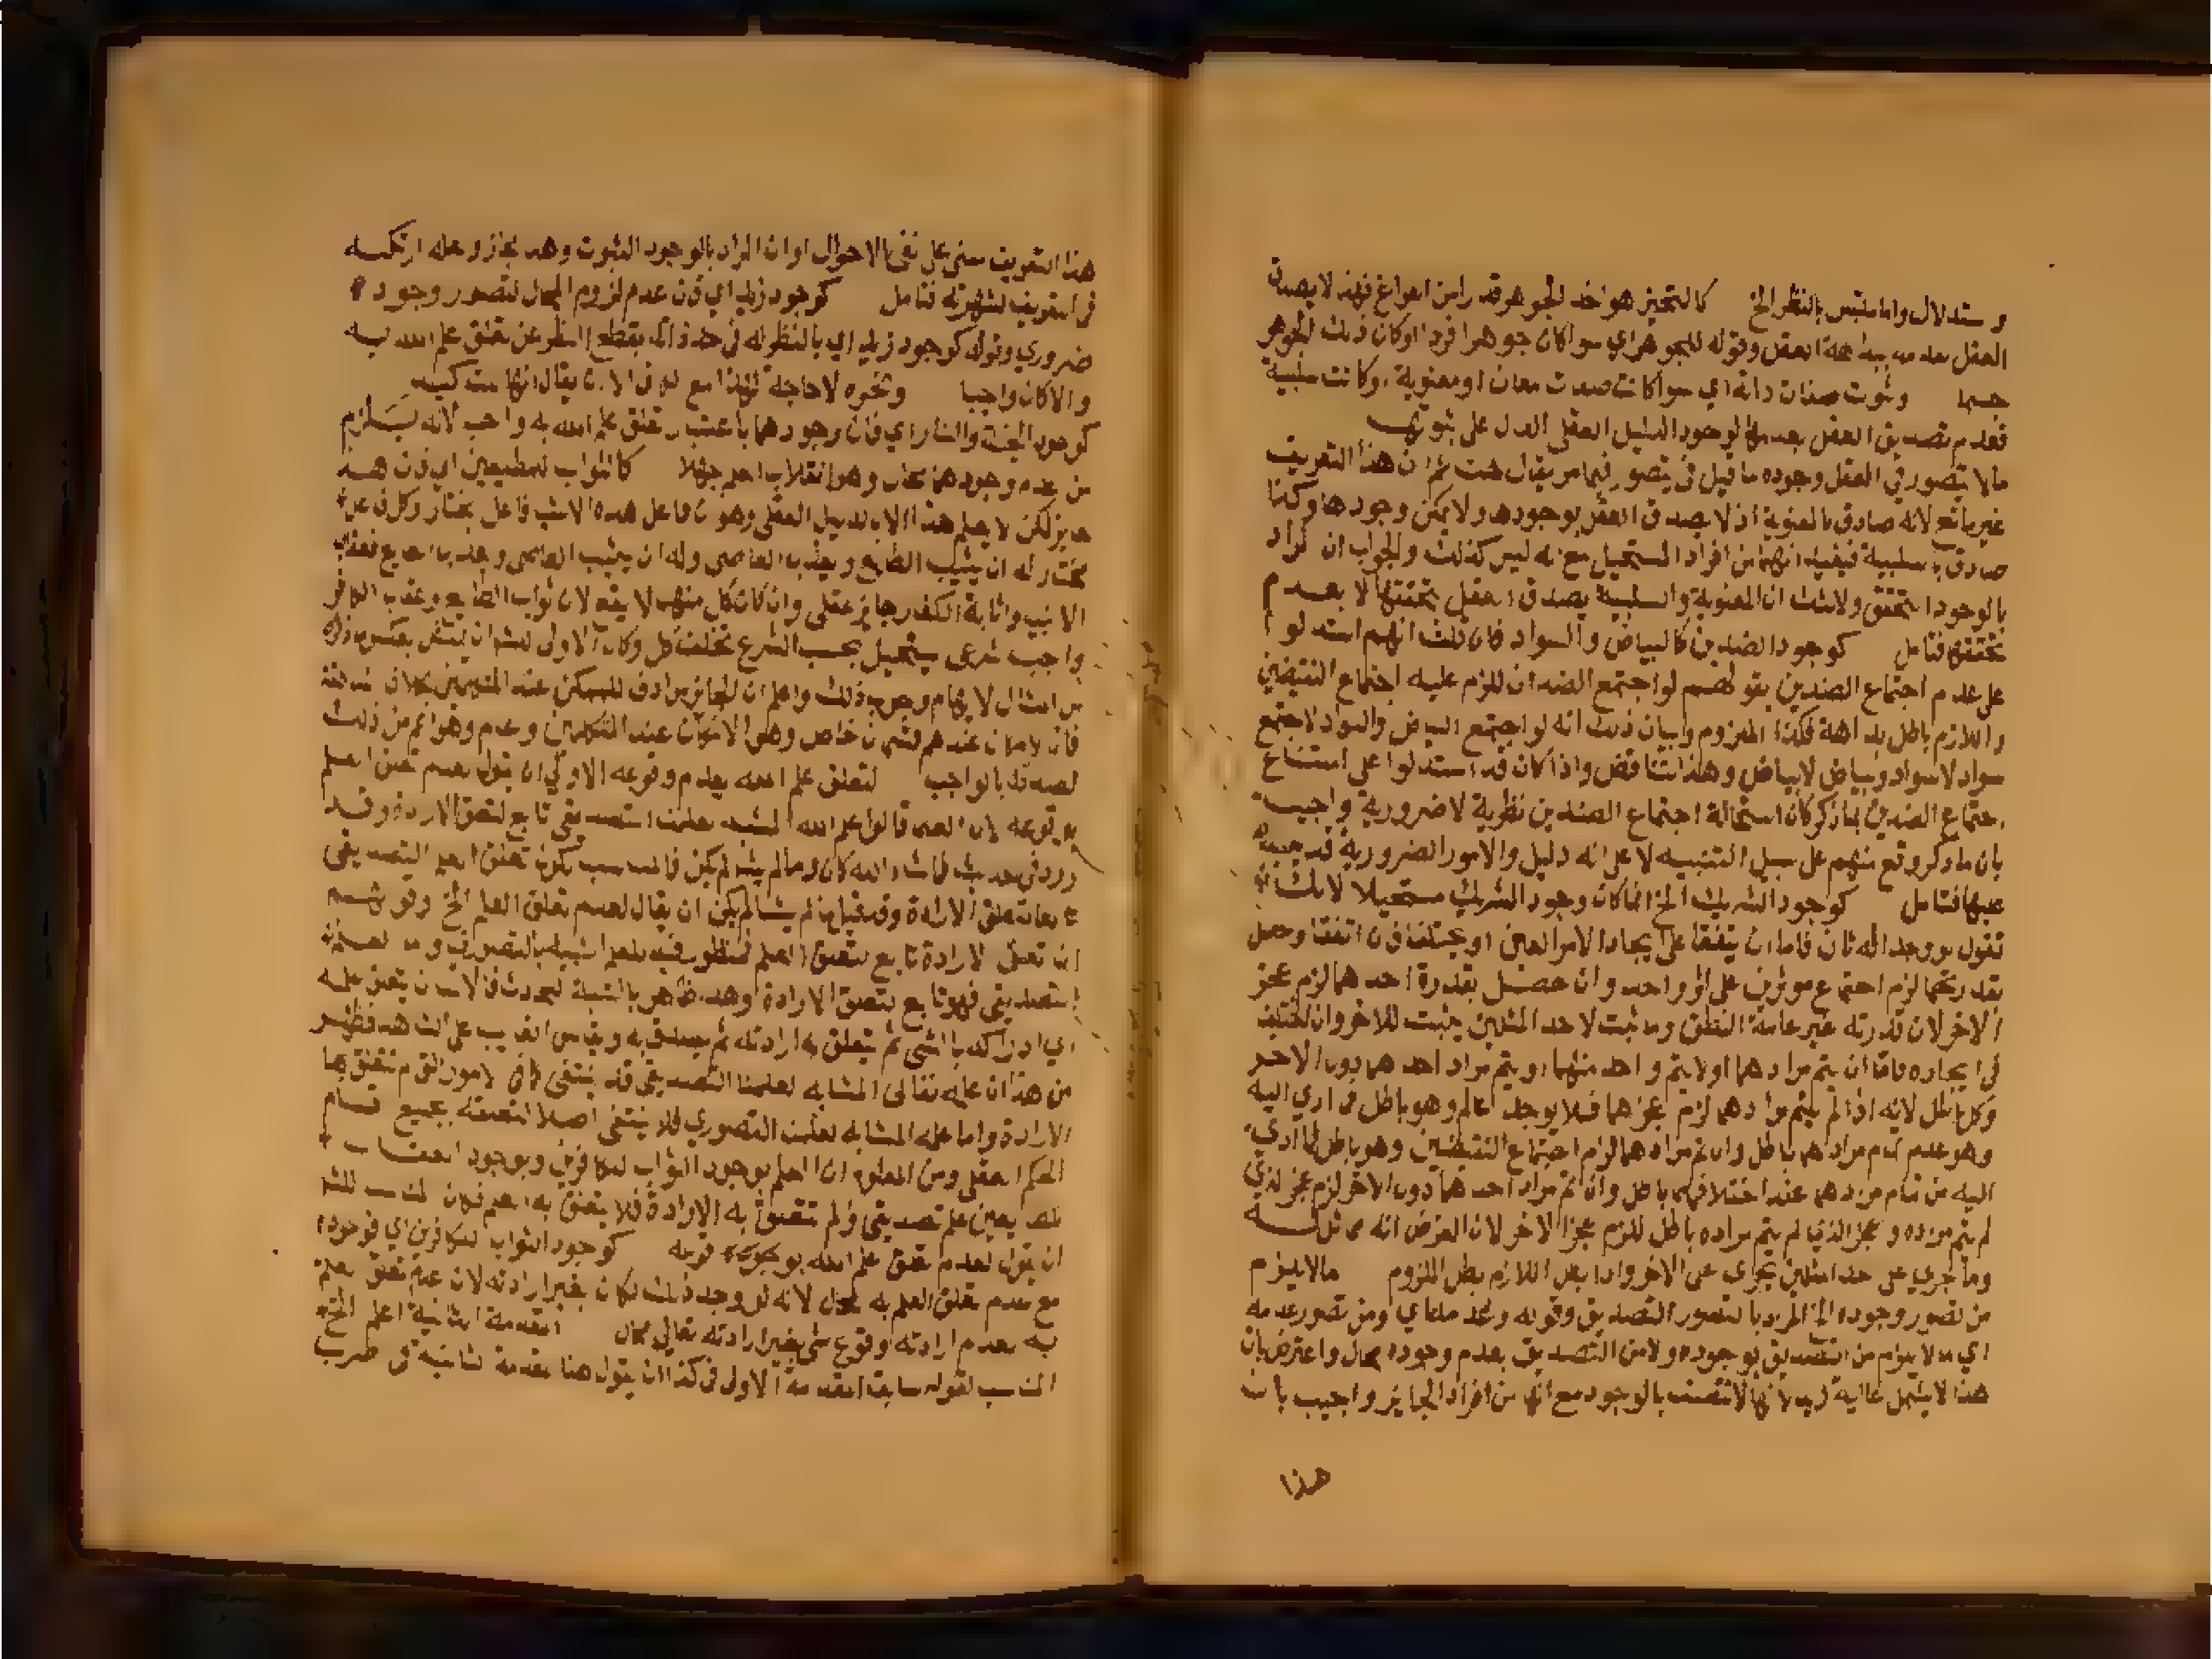 واستدلال واما ملتبس بالنظر الخ كالتحيز هو اخذ الجوهر قدرا من الفراغ فهذا لا يصدق
العقل بعدمه ببداهة العقل وقوله للجوهر اي سواكان جوهرا فردا اوكان ذلك الجوهر
جسما وثبوت صفات ذاته اي سواكانت صفات معان او معنوية اوكانت سلبية
فعدم تصديق العقل بعدمها لوجود الدليل العقلي الدال على ثبوتها
مالا يتصور في العقل وجوده ما قيل في يتصور فيما مر يقال هنا ثم ان هذا التعريف
غير مانع لانه صادق بالمعنوية اذ لا يصدق العقل بوجودها ولا يمكن وجودها وكذا
صادق بالسلبية فيفيد انهما من افراد المستحيل مع انه ليس كذلك والجواب ان المراد
بالوجود التحقق ولا شك ان المعنوية والسلبية يصدق العقل بتحققها لا بعدم
تحققها فتامل كوجود الضدين كالبياض والسواد فان قلت انهم استدلوا
على عدم اجتماع الضدين بقولهم لو اجتمع الضدان للزم عليه اجتماع النقيضين
واللازم باطل بداهة فكذا الملزوم وبيان ذلك انه لو اجتمع البياض والسواد لاجتمع
سواد لا سواد وبياض لا بياض وهذا تناقض واذا كان قد استدلوا على امتناع
اجتماع الضدين بما ذكر كان استحالة اجتماع الضدين نظرية لا ضرورية واجيب
بان ما ذكر وقع منهم على سبيل التنبيه لا على انه دليل والامور الضرورية قد ينبه
عليها فتامل كوجود الشريك الخ انما كان وجود الشريك مستحيلا لانك
تقول لو وجد اله ثان فاما ان يتفقا على ايجاد الامر المعين او يختلفا فان اتفقا وحصل
بقدرتهما لزم اجتماع موثرين على اثر واحد وان حصل بقدرة احدهما لزم عجز
الاخر لان قدرته غير عامة التعلق وما ثبت لاحد المثلين يثبت للاخر وان اختلفا
في ايجاده فاما ان يتم مرادهما او لا يتم واحد منهما او يتم مراد احدهما دون الاخر
وكل باطل لانه اذا لم يتم مرادهما لزم عجزهما فلا يوجد العالم وهو باطل فما ادي اليه
وهو عدم تمام مرادهما باطل وان تم مرادهما لزم اجتماع النقيضين وهو باطل فما ادي
اليه من تمام مرادهما عند اختلافهما باطل وان تم مراد احدهما دون الاخر لزم عجز الذي
لم يتم مراده وعجز الذي لم يتم مراده باطل للزم عجز الاخر لان الفرض انه مماثل له
وما جري على احد المثلين يجري على الاخر واذا بطل اللازم بطل الملزوم مالا يلزم
من تصور وجوده الخ المراد بالتصور التصديق وقوله وعدمه اي ومن تصور عدمه
اي ما لا يلزم من التصديق بوجوده ولا من التصديق بعدم وجوده محال واعترض بان
هذا لا يشمل عالمية زيد لانها لا تتصف بالوجود مع انها من افراد الجايز واجيب بان
هذا
هذا التعريف مبني على نفي الاحوال او ان المراد بالوجود الثبوت وهذا مجاز وعله ارتكبه
في التعريف لشهرته فتامل كوجود زيد اي فان عدم لزوم المحال لتصور وجوده
ضروري وقوله كوجود زيد اي بالنظر له في حد ذاته بقطع النظر عن تعلق علم الله به
والا كان واجبا ونحوه لا حاجة لهذا مع الكاف الا ان يقال انها
كوجود الجنة والنار اي فان وجودهما باعتبار تعلق علم الله به واجب لانه يستلزم
من عدم وجودهما محال وهو انقلاب العلم جهلا كالثواب للمطيعين اي فان هذا
جايز لكن لا يعلم هذا الا بدليل العقلي وهو ان فاعل هذه الاشيا فاعل مختار وكل فاعل
مختار له ان يثيب الطايع ويعذب العاصي وله ان يثيب العاصي ويعذب الطايع فعقاب
الانبيا واثابة الكفار جايز عقلي وان كان كل منهما لا يقع لان ثواب الطايع وعقاب الكافر
واجب شرعي يستحيل بحسب الشرع تخلف كل وكان الاولى للشارح ان يمثل بعكس ذلك
من المثال لايهام وجوب ذلك واعلم ان الجايز مرادف للممكن عند المتكلمين بخلاف المناطقة
فان الامكان عندهم قسمان خاص وهو الامكان عند المتكلمين وعام وهو اعم من ذلك
لصدقه بالواجب لتعلق علم الله بعدم وقوعه الاولى ان يقول لعدم تعلق العلم
بوقوعه لان العلما قالوا علم الله المشبه بعلمنا التصديقي تابع لتعلق الارادة وقد
ورد في حديث ما شاء الله كان وما لم يشا لم يكن فالمناسب لكون تعلق العلم التصديقي
تابعا لتعلق الارادة وقد قيل ما لم يشا لم يكن ان يقال لعدم تعلق العلم الخ وقولهم
ان تعلق الارادة تابع لتعلق العلم فمنظور فيه للعلم الشبيه بالتصوري واما العلم
التصديقي فهو تابع لتعلق الارادة وهذا ظاهر بالنسبة للحادث فالانسان يتعلق علمه
اي ادراكه بالشي ثم يتعلق به ارادته ثم يصدق به ويقاس الغايب على الشاهد فظهر
من هذا ان علمه تعالى المشابه لعلمنا التصديقي قد ينتفي في الامور التي لم تتعلق بها
الارادة واما علمه المشابه لعلمنا التصوري فلا ينتفي اصلا لتعلقه بجميع اقسام
الحكم العقلي ومن المعلوم ان العلم بوجود الثواب للكافرين وبوجود العقاب
للطايعين علم تصديقي ولم تتعلق به الارادة فلا يتعلق به العلم فكان المناسب للشارح
ان يقول لعدم تعلق علم الله بوجود قوله كوجود الثواب للكافرين اي فوجوده
مع عدم تعلق العلم به محال لانه لو وجد ذلك لكان بغير ارادته لان عدم تعلق علمه
به بعدم ارادته او وقوع شي بغير ارادته تعالى محال المقدمة الثانية اعلم الخ
المناسب لقوله سابقا المقدمة الاولى في كذا ان يقول هنا المقدمة الثانية في